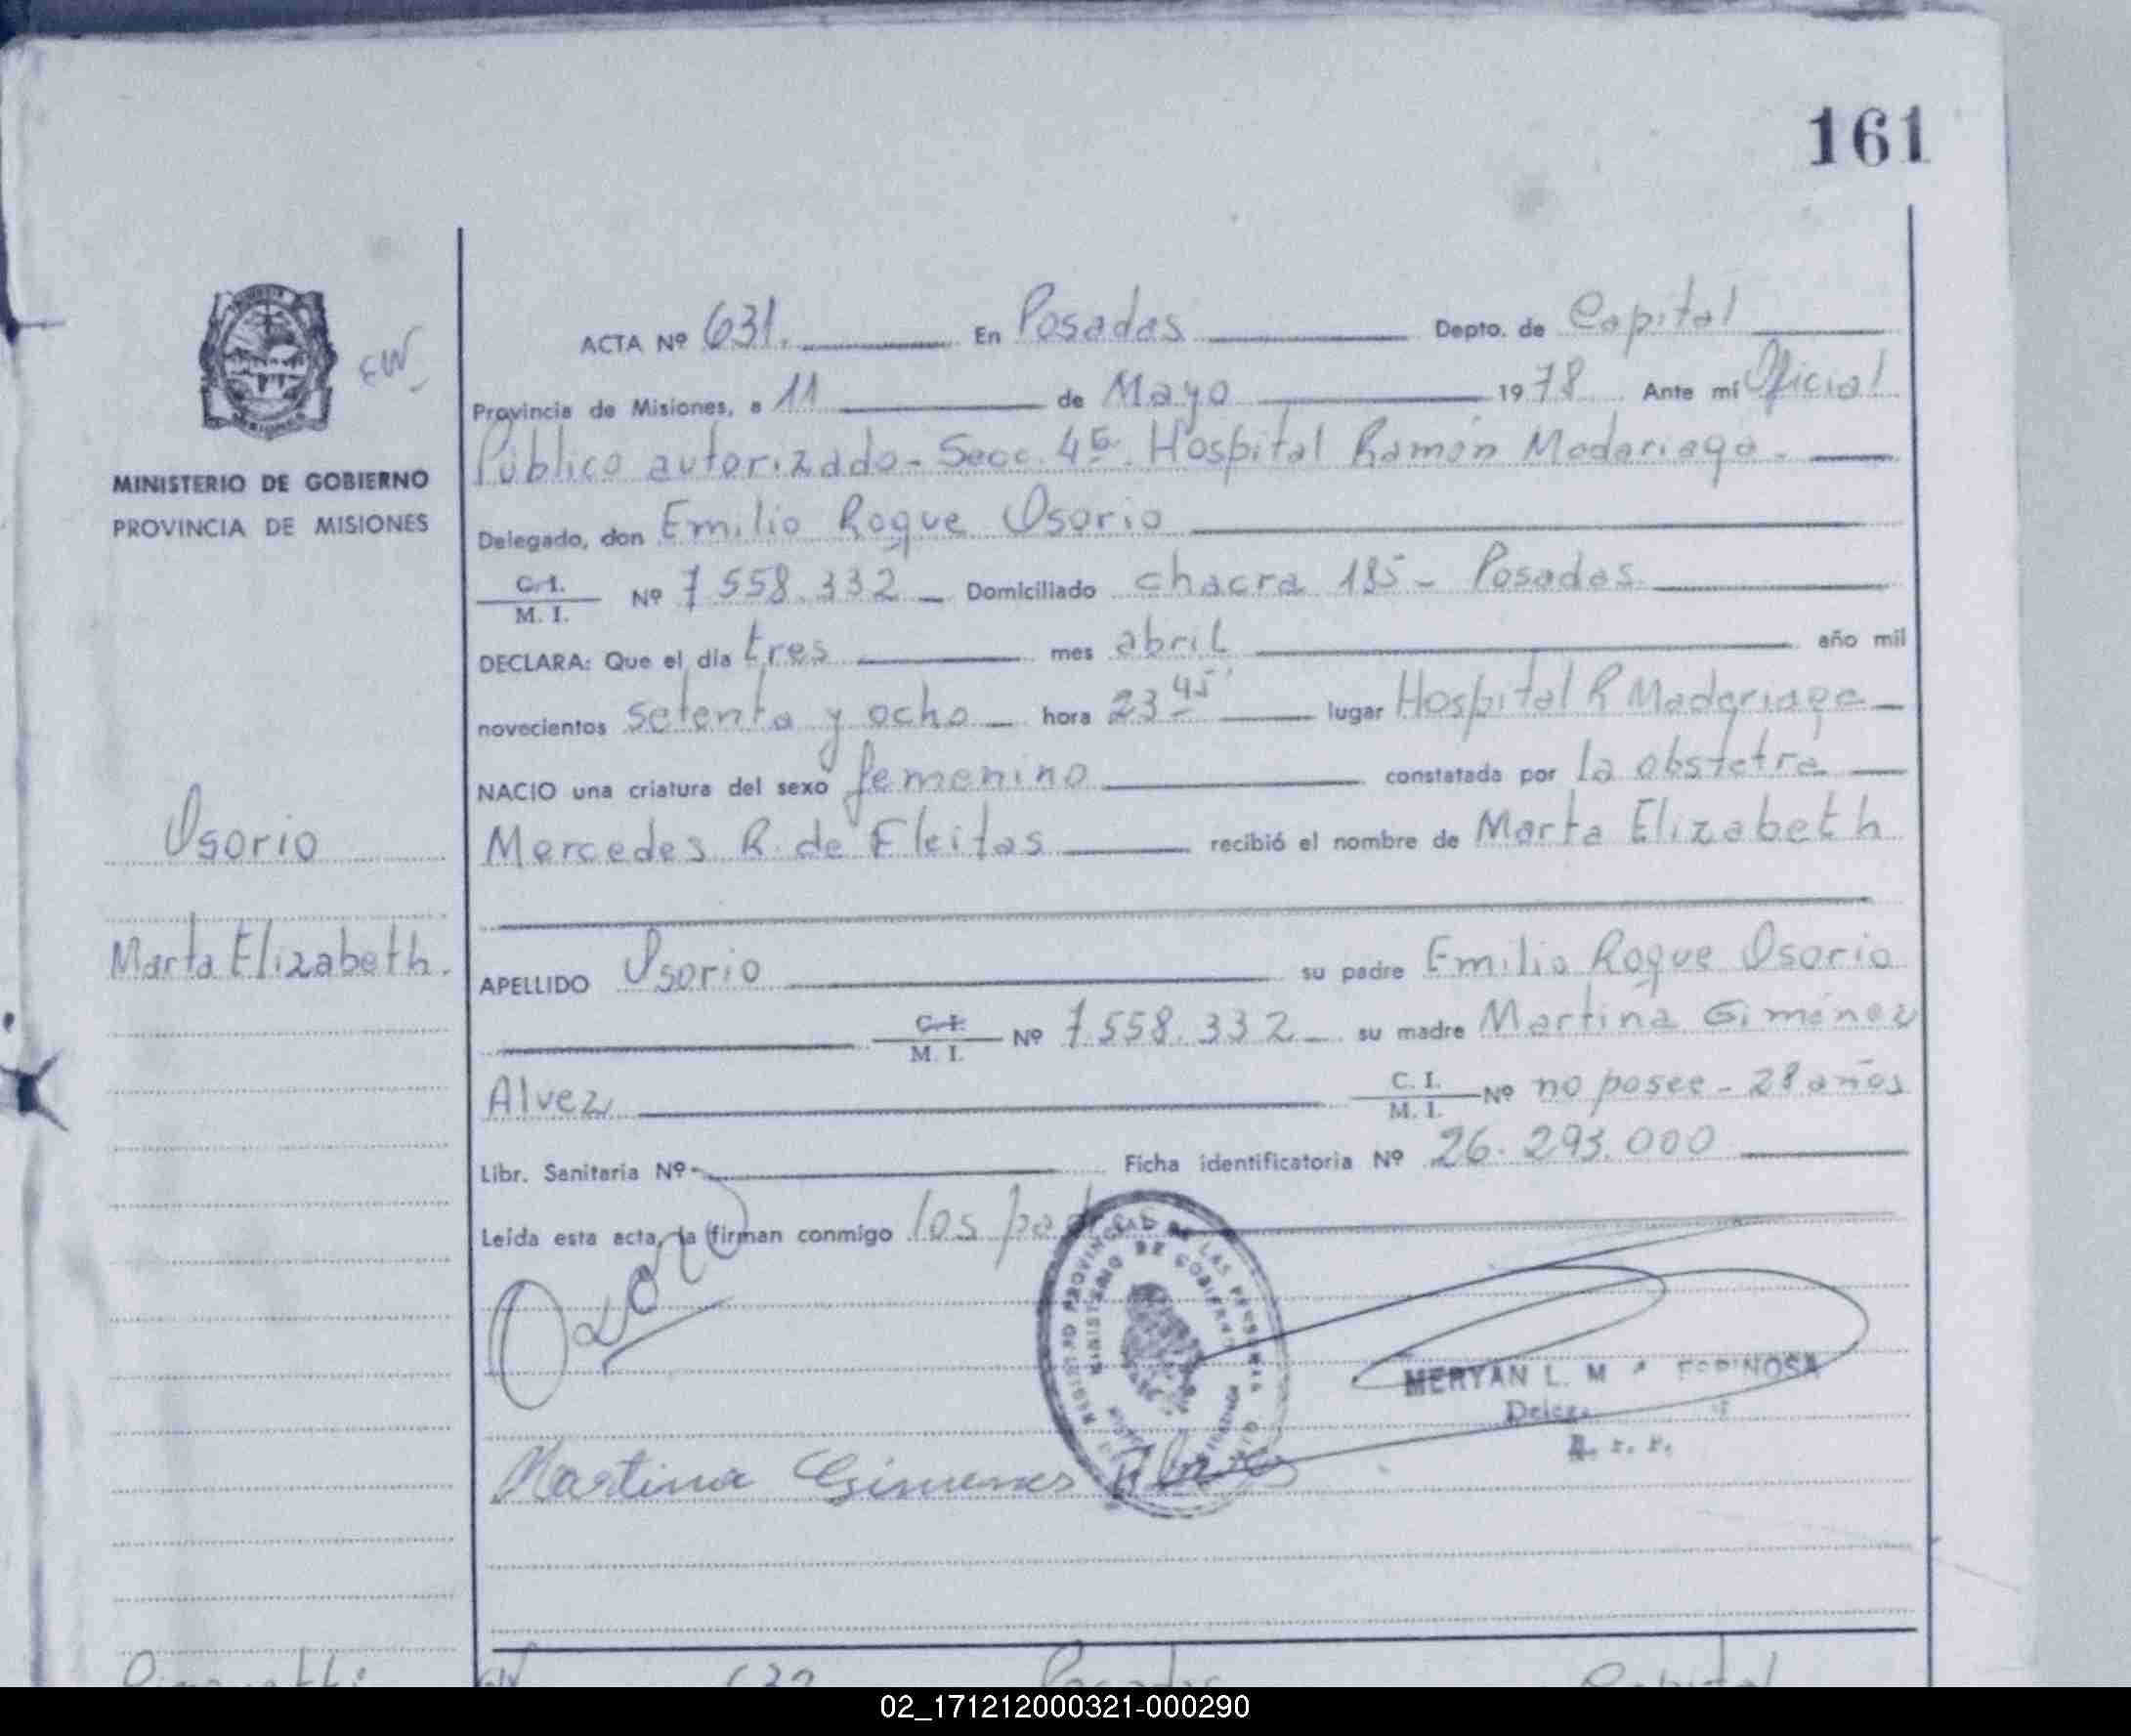 161
EW
MINISTERIO DE GOBIERNO
PROVINCIA DE MISIONES
Osorio
Marta Elizabeth.
ACTA Nº 631. En Posadas Depto. de Capital
Provincia de Misiones, a 11 de Mayo 1978 Ante mí Oficial
Público autorizado - Secc. 4ª. Hospital Ramón Madariaga.
Delegado, don Emilio Roque Osorio
C.I. M. I. Nº 7558.332 Domiciliado chacra 185 - Posadas
DECLARA: Que el día tres mes abril año mil
novecientos setenta y ocho hora 23 45 lugar Hospital R Madariaga
NACIO una criatura del sexo femenino constatada por la obstetra
Mercedes R. de Fleitas recibió el nombre de Marta Elizabeth
APELLIDO Osorio su padre Emilio Roque Osorio
C.I. M. I. Nº 7.558.332 su madre Martina Giménez
Alvez C. I. M. I. Nº no posee - 28 años
Libr. Sanitaria Nº Ficha identificatoria Nº 26.293.000
Leída esta acta, la firman conmigo los
MERYAN L. M ESPINOSA
Martina Gimenes
632 Posadas Capital
02_171212000321-000290